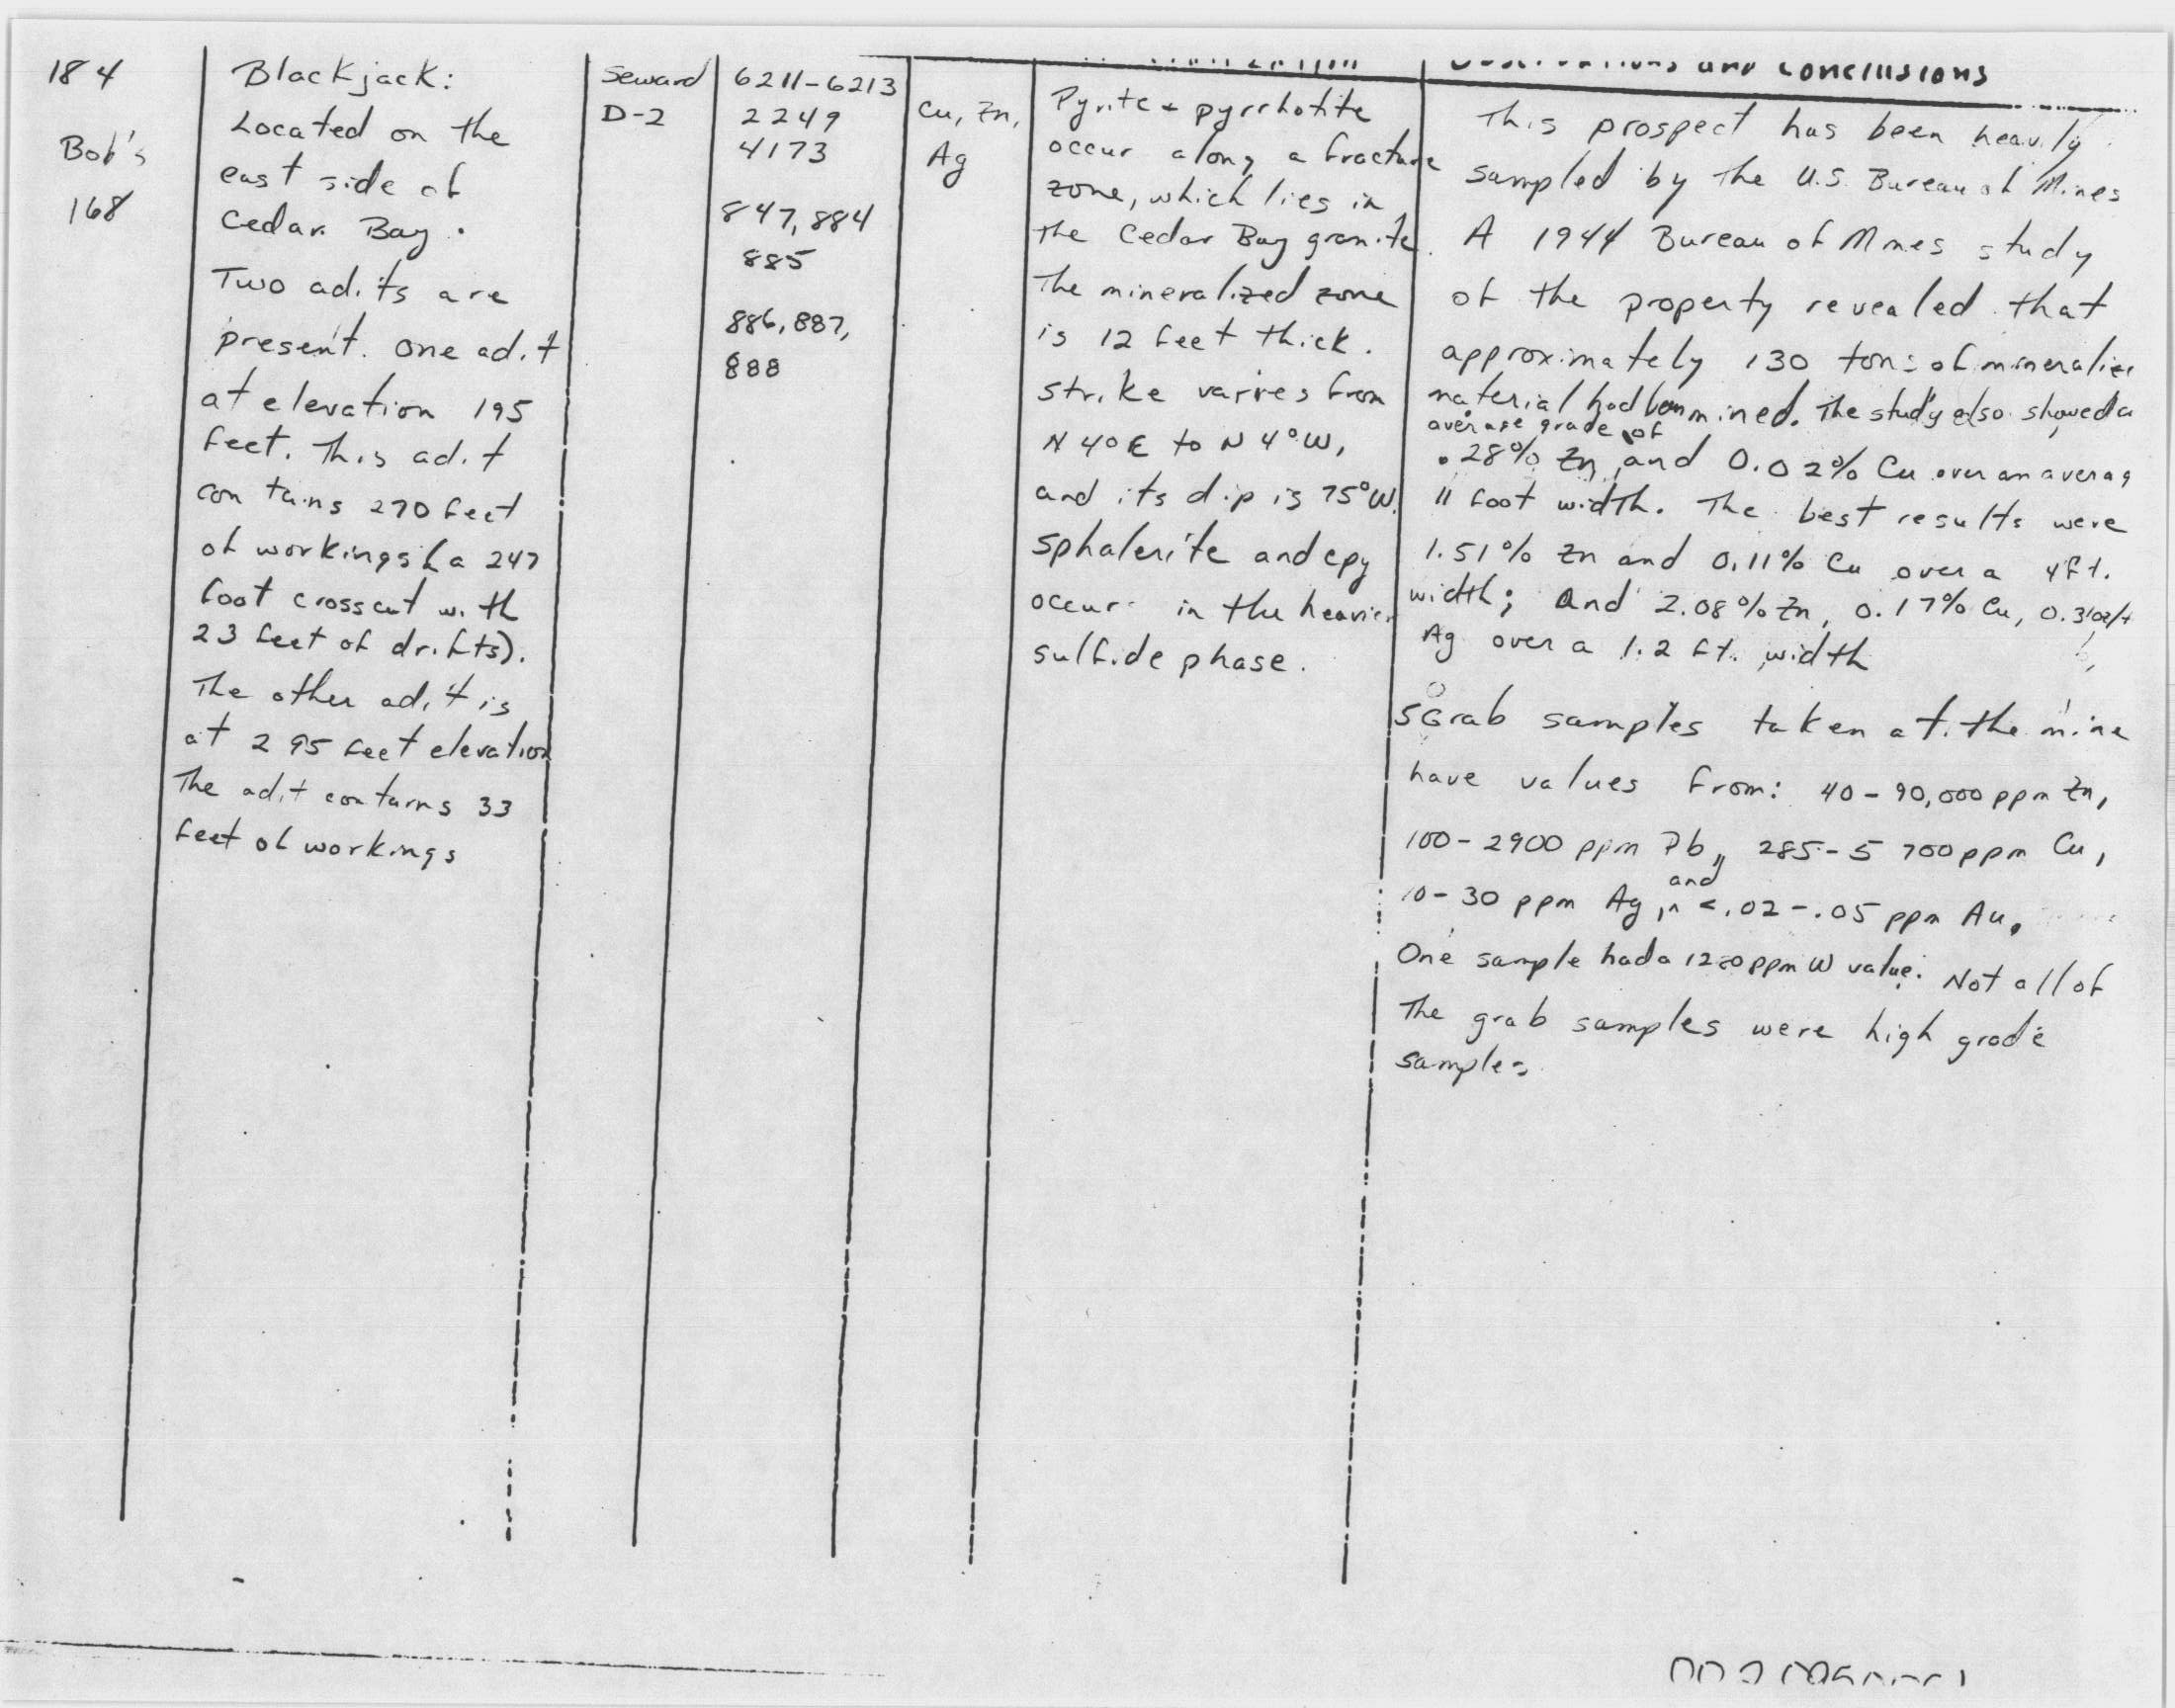 184
Bob's
168
Blackjack:
Located on the
east side of
Cedar Bay.
Two adits are
present. One adit
at elevation 195
feet. This adit
contains 270 feet
of workings (a 247
foot crosscut with
23 feet of drifts).
The other adit is
at 295 feet elevation
The adit contains 33
feet of workings
Seward
D-2
6211-6213
2249
4173
847, 884
885
886, 887,
888
Cu, Zn,
Ag
Pyrite + pyrrhotite
occur along a fracture
zone, which lies in
the Cedar Bay granite.
The mineralized zone
is 12 feet thick.
Strike varies from
N 4° E to N 4° W,
and its dip is 75° W.
Sphalerite and cpy
occur in the heavier
sulfide phase.
and conclusions
This prospect has been heavily
sampled by the U.S. Bureau of Mines
A 1944 Bureau of Mines study
of the property revealed that
approximately 130 tons of mineralize
material had been mined. The study also showed a
average grade of
.28% Zn and 0.02% Cu over an averag
11 foot width. The best results were
1.51% Zn and 0.11% Cu over a 4 ft.
width; and 2.08% Zn, 0.17% Cu, 0.3 oz/t
Ag over a 1.2 ft. width
5 Grab samples taken at the mine
have values from: 40-90,000 ppm Zn,
100-2900 ppm Pb, 285-5700 ppm Cu,
10-30 ppm Ag, and <.02-.05 ppm Au.
One sample had a ppm W value. Not all of
The grab samples were high grade
samples